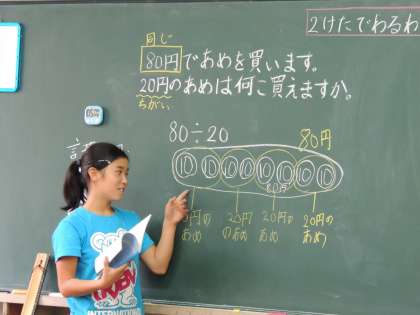 2けたでわるわ
同じ
80円であめを買います。
20円のあめは何こ買えますか。
ちがい
80÷20
80円
10 10 10 10 10 10 10 10
20円の
あめ
20円
のあめ
20円の
あめ
20円の
あめ
INTERNATIONAL